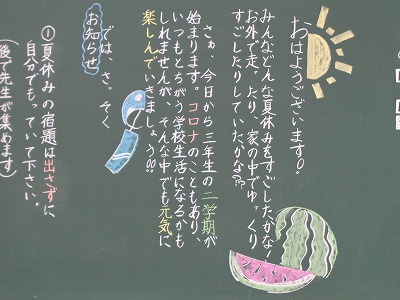 おはようございます。
みんなどんな夏休みをすごしたかな？
お外で走ったり、家の中でゆっくり
すごしたりしていたかな？？
さぁ、今日から三年生の二学期が
始まります。コロナのこともあり、
いつもとちがう学校生活になるかも
しれませんが、そんな中でも元気に
楽しんでいきましょう！！
では、さっそく
お知らせ
①夏休みの宿題は出さずに
自分でもっていて下さい。
(後で先生が集めます)